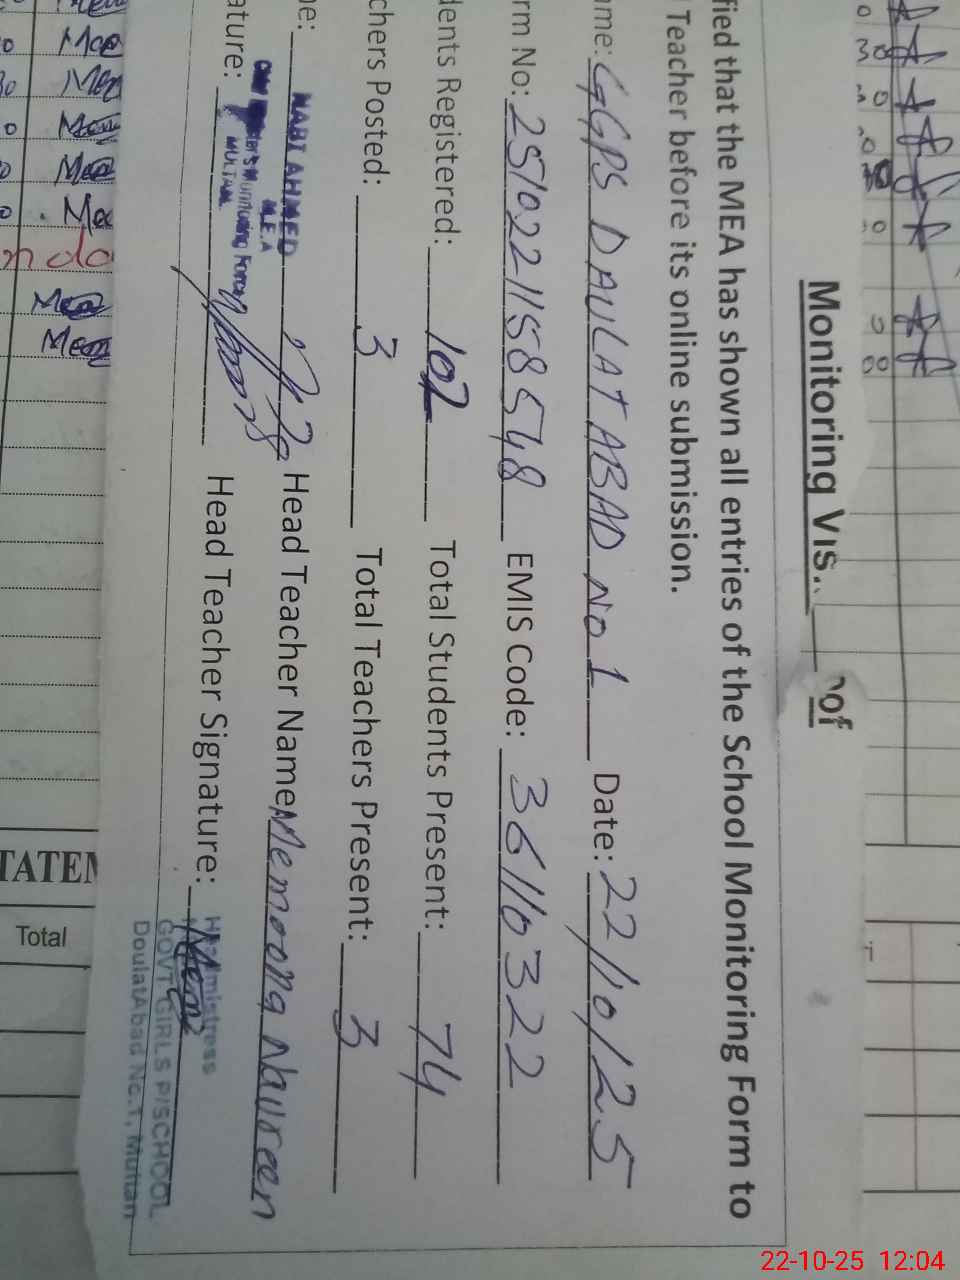 Monitoring Vis of
fied that the MEA has shown all entries of the School Monitoring Form to
Teacher before its online submission.
me: GGPS DAULAT ABAD No 1 Date: 22/10/25
rm No: 2510221158548 EMIS Code: 36110322
dents Registered: 102 Total Students Present: 74
chers Posted: 3 Total Teachers Present: 3
ne: NABI AHMED Head Teacher Name Memoona Naureen
M.E.A
ature: Head Teacher Signature:
MULTAN
Headmistress
GOVT GIRLS P/SCHOOL
DoulatAbad No.1, Multan
TATEM
Total
22-10-25 12:04